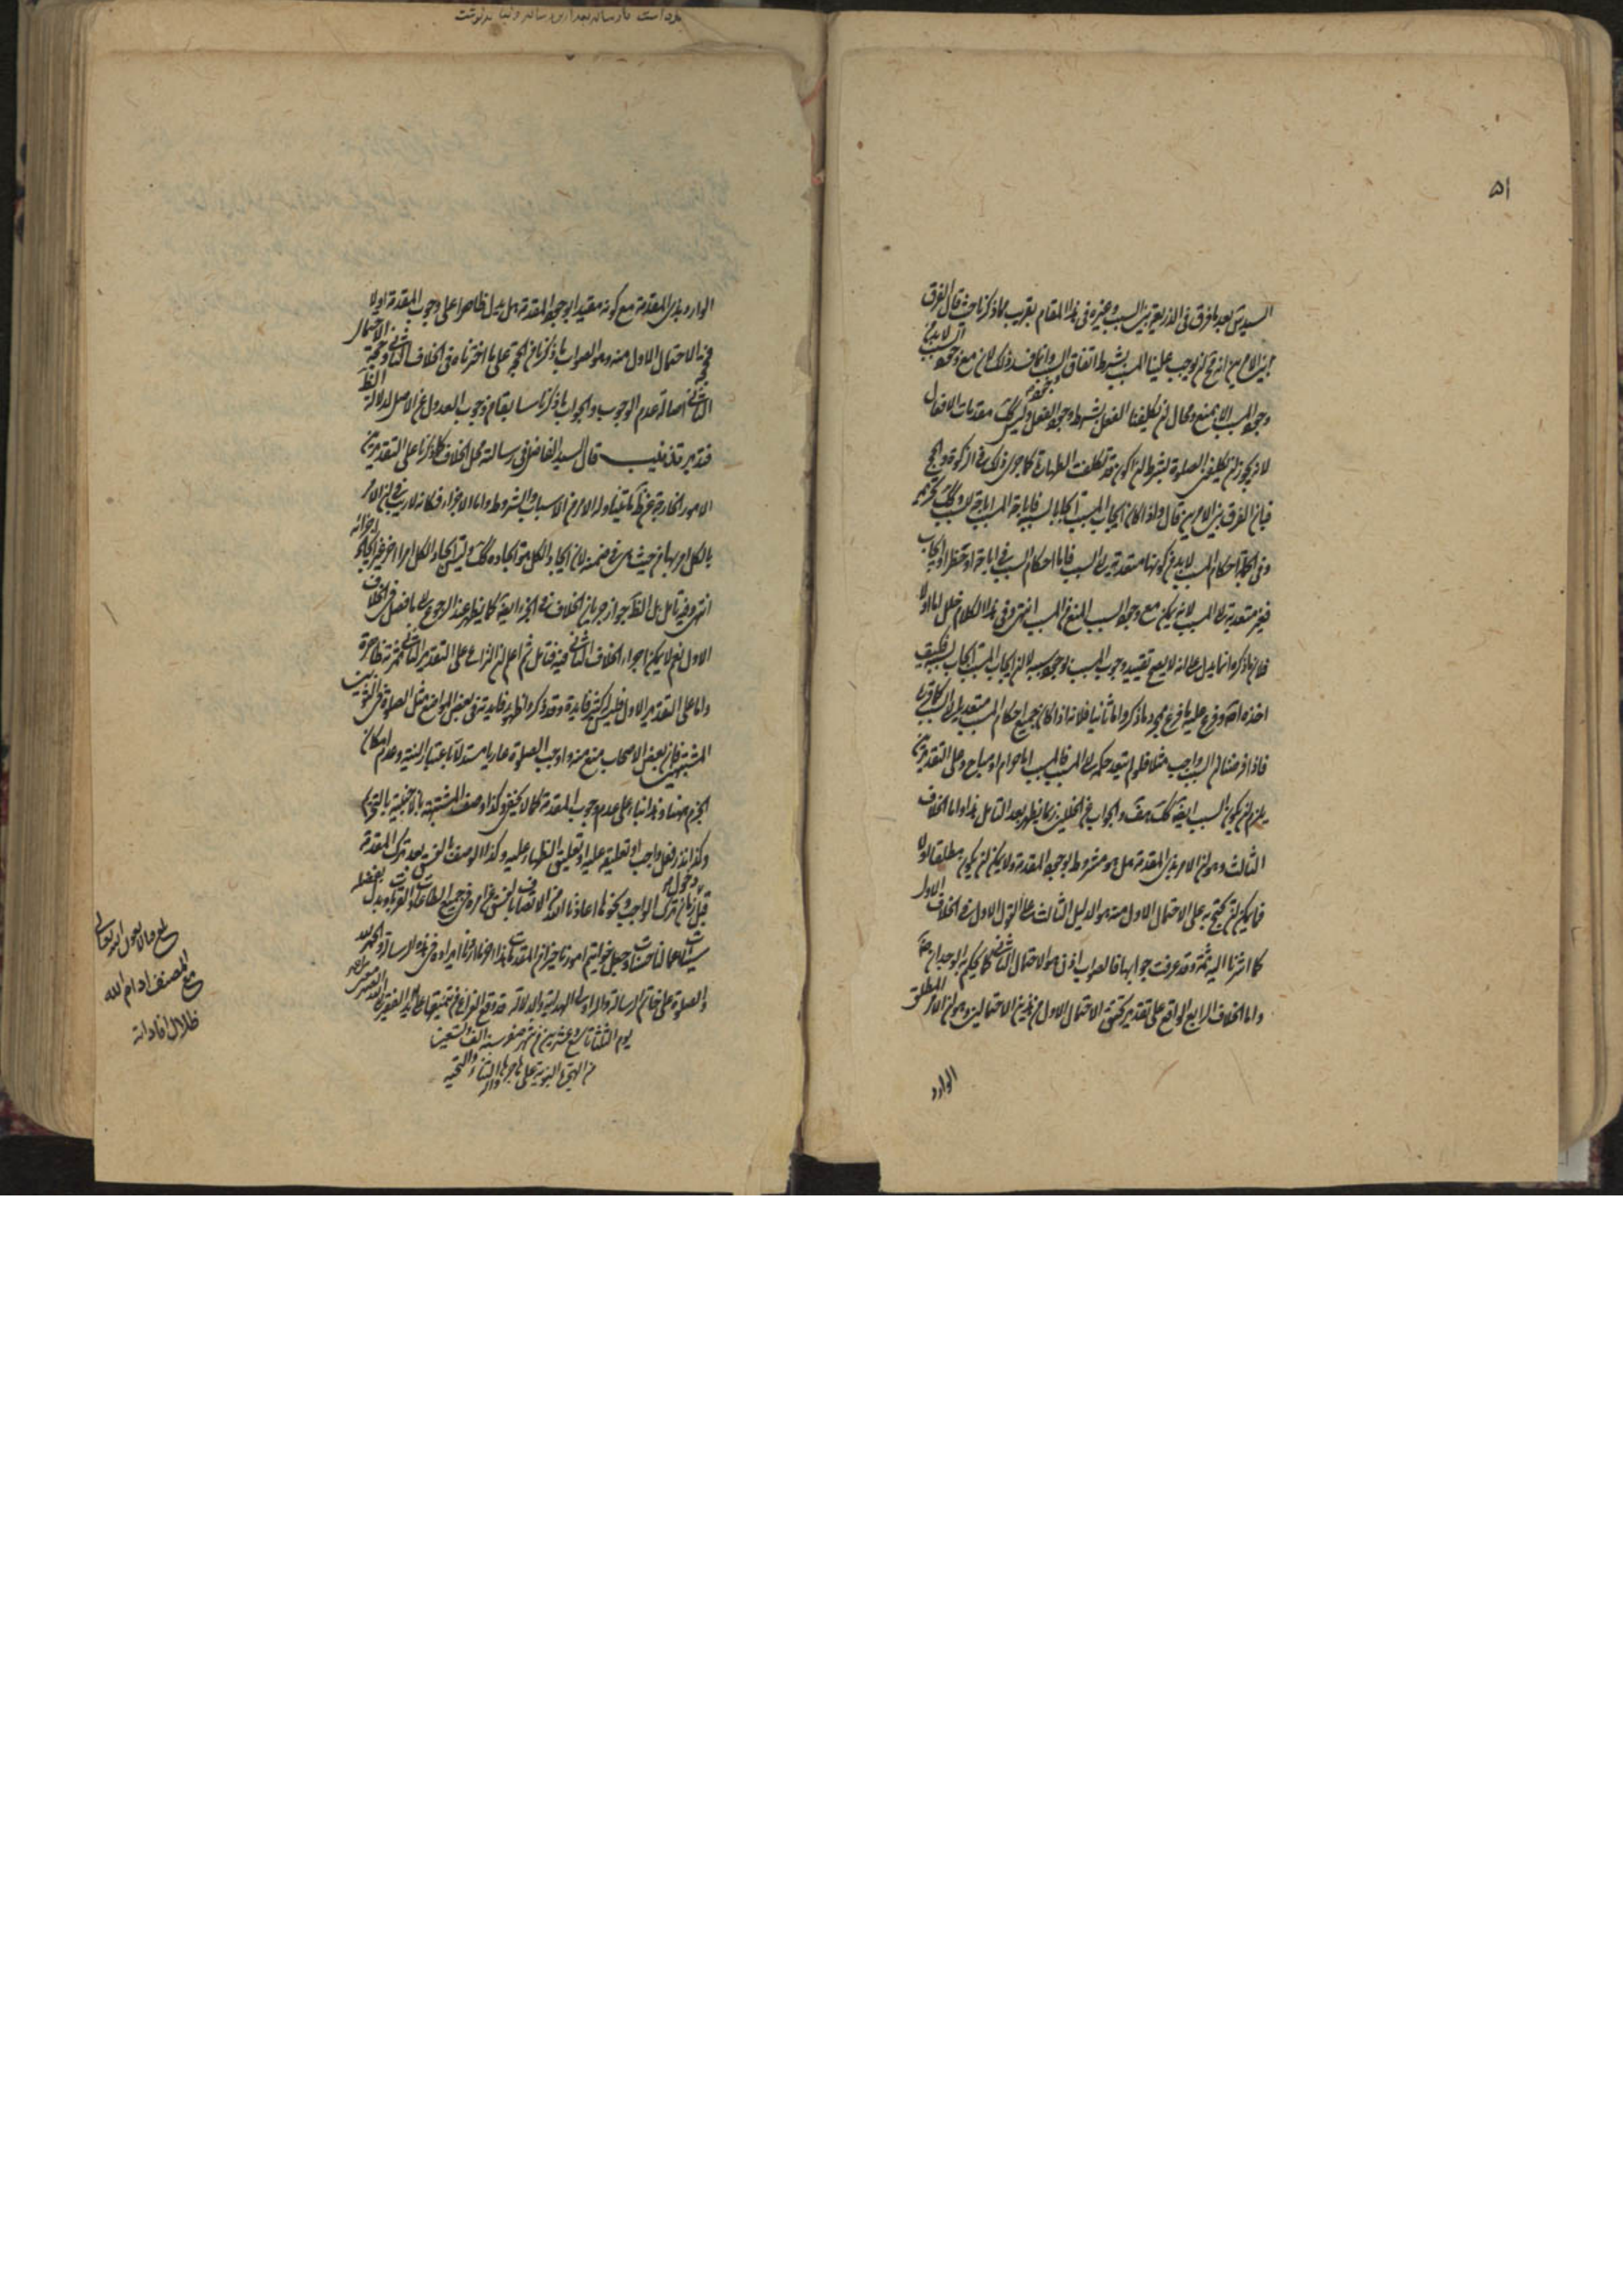 ۵۱
السيد بعد ما فرق في الذريعة بين السبب وغيره في هذا المقام بقريب مما ذكرنا حيث قال الفرق
بين الامرين انه محال ان يوجب علينا المسبب بشرط اتفاق السبب وانما فسد ذلك لان مع وجود السبب لا بد من
وجود المسبب الا لمنع ومحال ان يكلفنا الفعل بشرط وجود الفعل وليس كك مقدمات الافعال
لانه يجوز ان يكلفني الصلوة بشرط ان اكون قد تكلفت الطهارة كما جرى ذلك في الزكوة والحج
فبان الفرق بين الامرين قال واذا كان ايجاب المسبب ايجابا لسببه فاباحة المسبب اباحة لسببه وكك تحريمه
وفي الجملة احكام المسبب لا بد من كونها متعدية الى السبب فاما احكام السبب في اباحة او حظر او ايجاب
فغير متعدية الى المسبب لانه يمكن مع وجود السبب المنع من المسبب انتهى وفي هذا الكلام خلل اما اولا
فلان ما ذكره انما يدل على انه لا يصح تقييد وجوب المسبب بوجود سببه لا ان ايجاب المسبب ايجاب لسببه فكيف
اخذه وفرع عليه ما فرع بمجرد ما ذكر واما ثانيا فلانه اذا كان جميع احكام المسبب متعديا الى السبب كما قرره
فاذا فرضنا ان السبب واجب مثلا فلو لم يتعد حكمه الى المسبب فالمسبب اما حرام او مباح وعلى التقديرين
يلزم ان يكون السبب ايضا كك هف والجواب عن الخللين مما يظهر بعد التامل هذا واما الخلاف
الثالث وهو ان الامر بذي المقدمة هل هو مشروط بوجود المقدمة ولا يمكن ان يكون مطلقا اولا
فما يمكن ان يحتج به على الاحتمال الاول منه هو الدليل الثالث على القول الاول في الخلاف الاول
كما اشرنا اليه ثمة وقد عرفت جوابها فالصواب اذن هو الاحتمال الثاني كما يحكم به الوجدان
واما الخلاف الرابع الواقع على تقدير تحقق الاحتمال الاول من هذين الاحتمالين وهو ان الامر المطلق
الوارد
الوارد بذي المقدمة مع كونه مقيدا بوجود المقدمة هل يدل ظاهرا على وجوب المقدمة اولا
فحجة الاحتمال الاول منه وهو الصواب ما ذكرنا من الحجة على ما اخترناه في الخلاف الثاني وحجة الاحتمال
الثاني اصالة عدم الوجوب والجواب ما ذكرنا سابقا من وجوب العدول عن الاصل لدلالة الظ
فتدبر تذنيب قال السيد الفاضل في رسالته محل الخلاف كما ذكرنا على التقديرين
الامور الخارجة عن المتناوله الامر من الاسباب والشروط واما الاجزاء فكانه لا ريب في ان الامر
بالكل امر بها من حيث هي في ضمنه لان ايجاب الكل هو ايجاده كك وليس ايجاد الكل امرا اخر غير ايجاد اجزائه
انتهى وفيه تامل بل الظ جواز جريان الخلاف في الجزء ايضا كما يظهر عند الرجوع الى ما فصل في الخلاف
الاول نعم لا يمكن اجراء الخلاف الثاني فيه فتامل ثم اعلم ان النزاع على التقدير الثاني ثمرته ظاهرة
واما على التقدير الاول فليس كثير فايدة وقد ذكروا ظهور فايدته في بعض المواضع مثل الصلوة في الثوبين
المشتبهين فان بعض الاصحاب منع منه واوجب الصلوة عاريا مستدلا باعتبار النية وعدم امكان
الجزم هنا وهذا بناء على عدم وجوب المقدمة كما لا يخفى وكذا وصف المشتبهة بالاجنبية بالتحريم
وكذا نذر فعل واجب او تعليقه عليه او تعليق الظهار عليه وكذا الوصف بالفسق بعد ترك المقدمة
قبل زمان ترك الواجب ونحوها اعاذنا الله من الاتصاف بالفسق
سيئات اعمالنا حسنات وجعل خواتيم امورنا خيرا من المقدمات هذا اخر ما اردنا ايراده في هذه الرسالة والحمد لله
والصلوة على خاتم الرسالة واله اولي الهداية والدلالة قد وقع الفراغ من تنميقها على يد الفقير
يوم الثلثا تاسع وعشرين من شهر صفر سنة الف وتسعين
من الهجرة النبوية على هاجرها واله الثناء والتحية
بلغ مقابلة بعون الله تعالى
مع المصنف ادام الله
ظلال افاداته